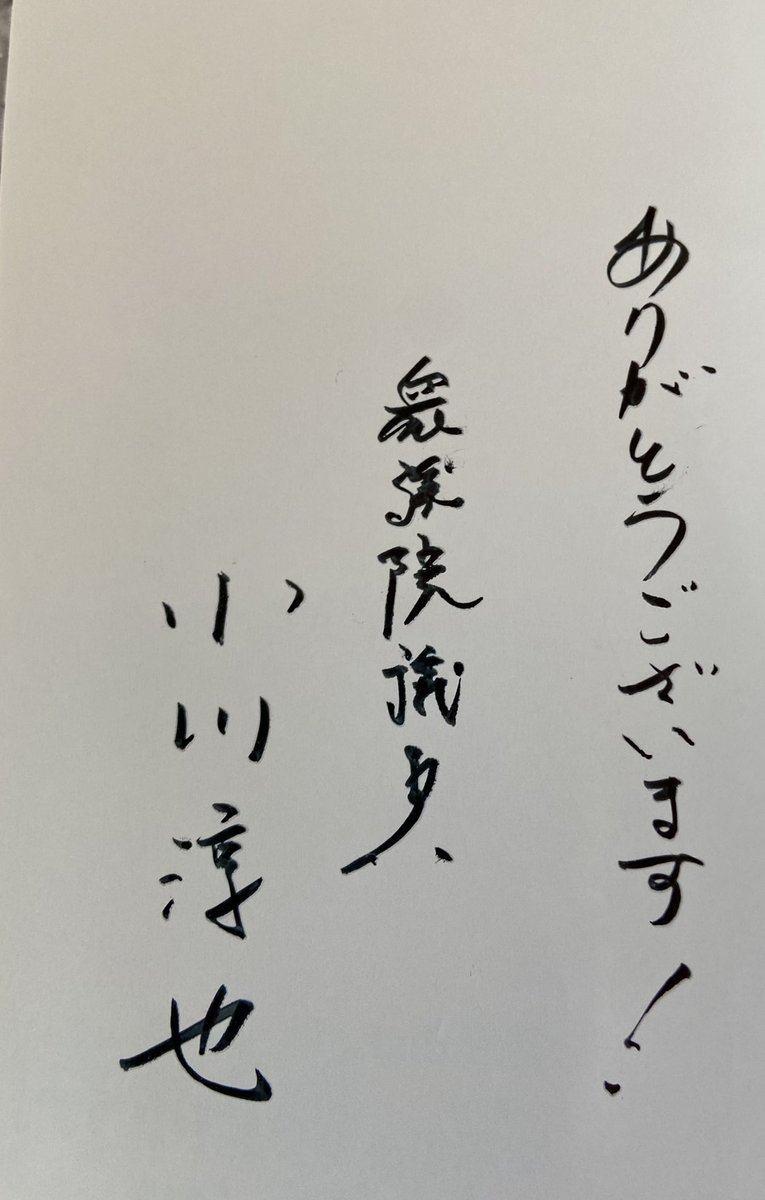 ありがとうございます!
衆議院議員
小川淳也